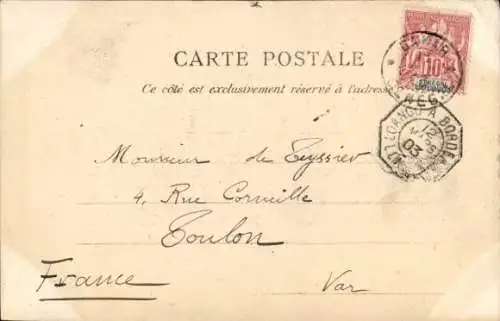 CARTE POSTALE
Ce côté est exclusivement réservé à l'adresse
10
LOANGO A BORDEAUX
12
03
Monsieur de Teyssier
4, Rue Corneille
Toulon
France
Var